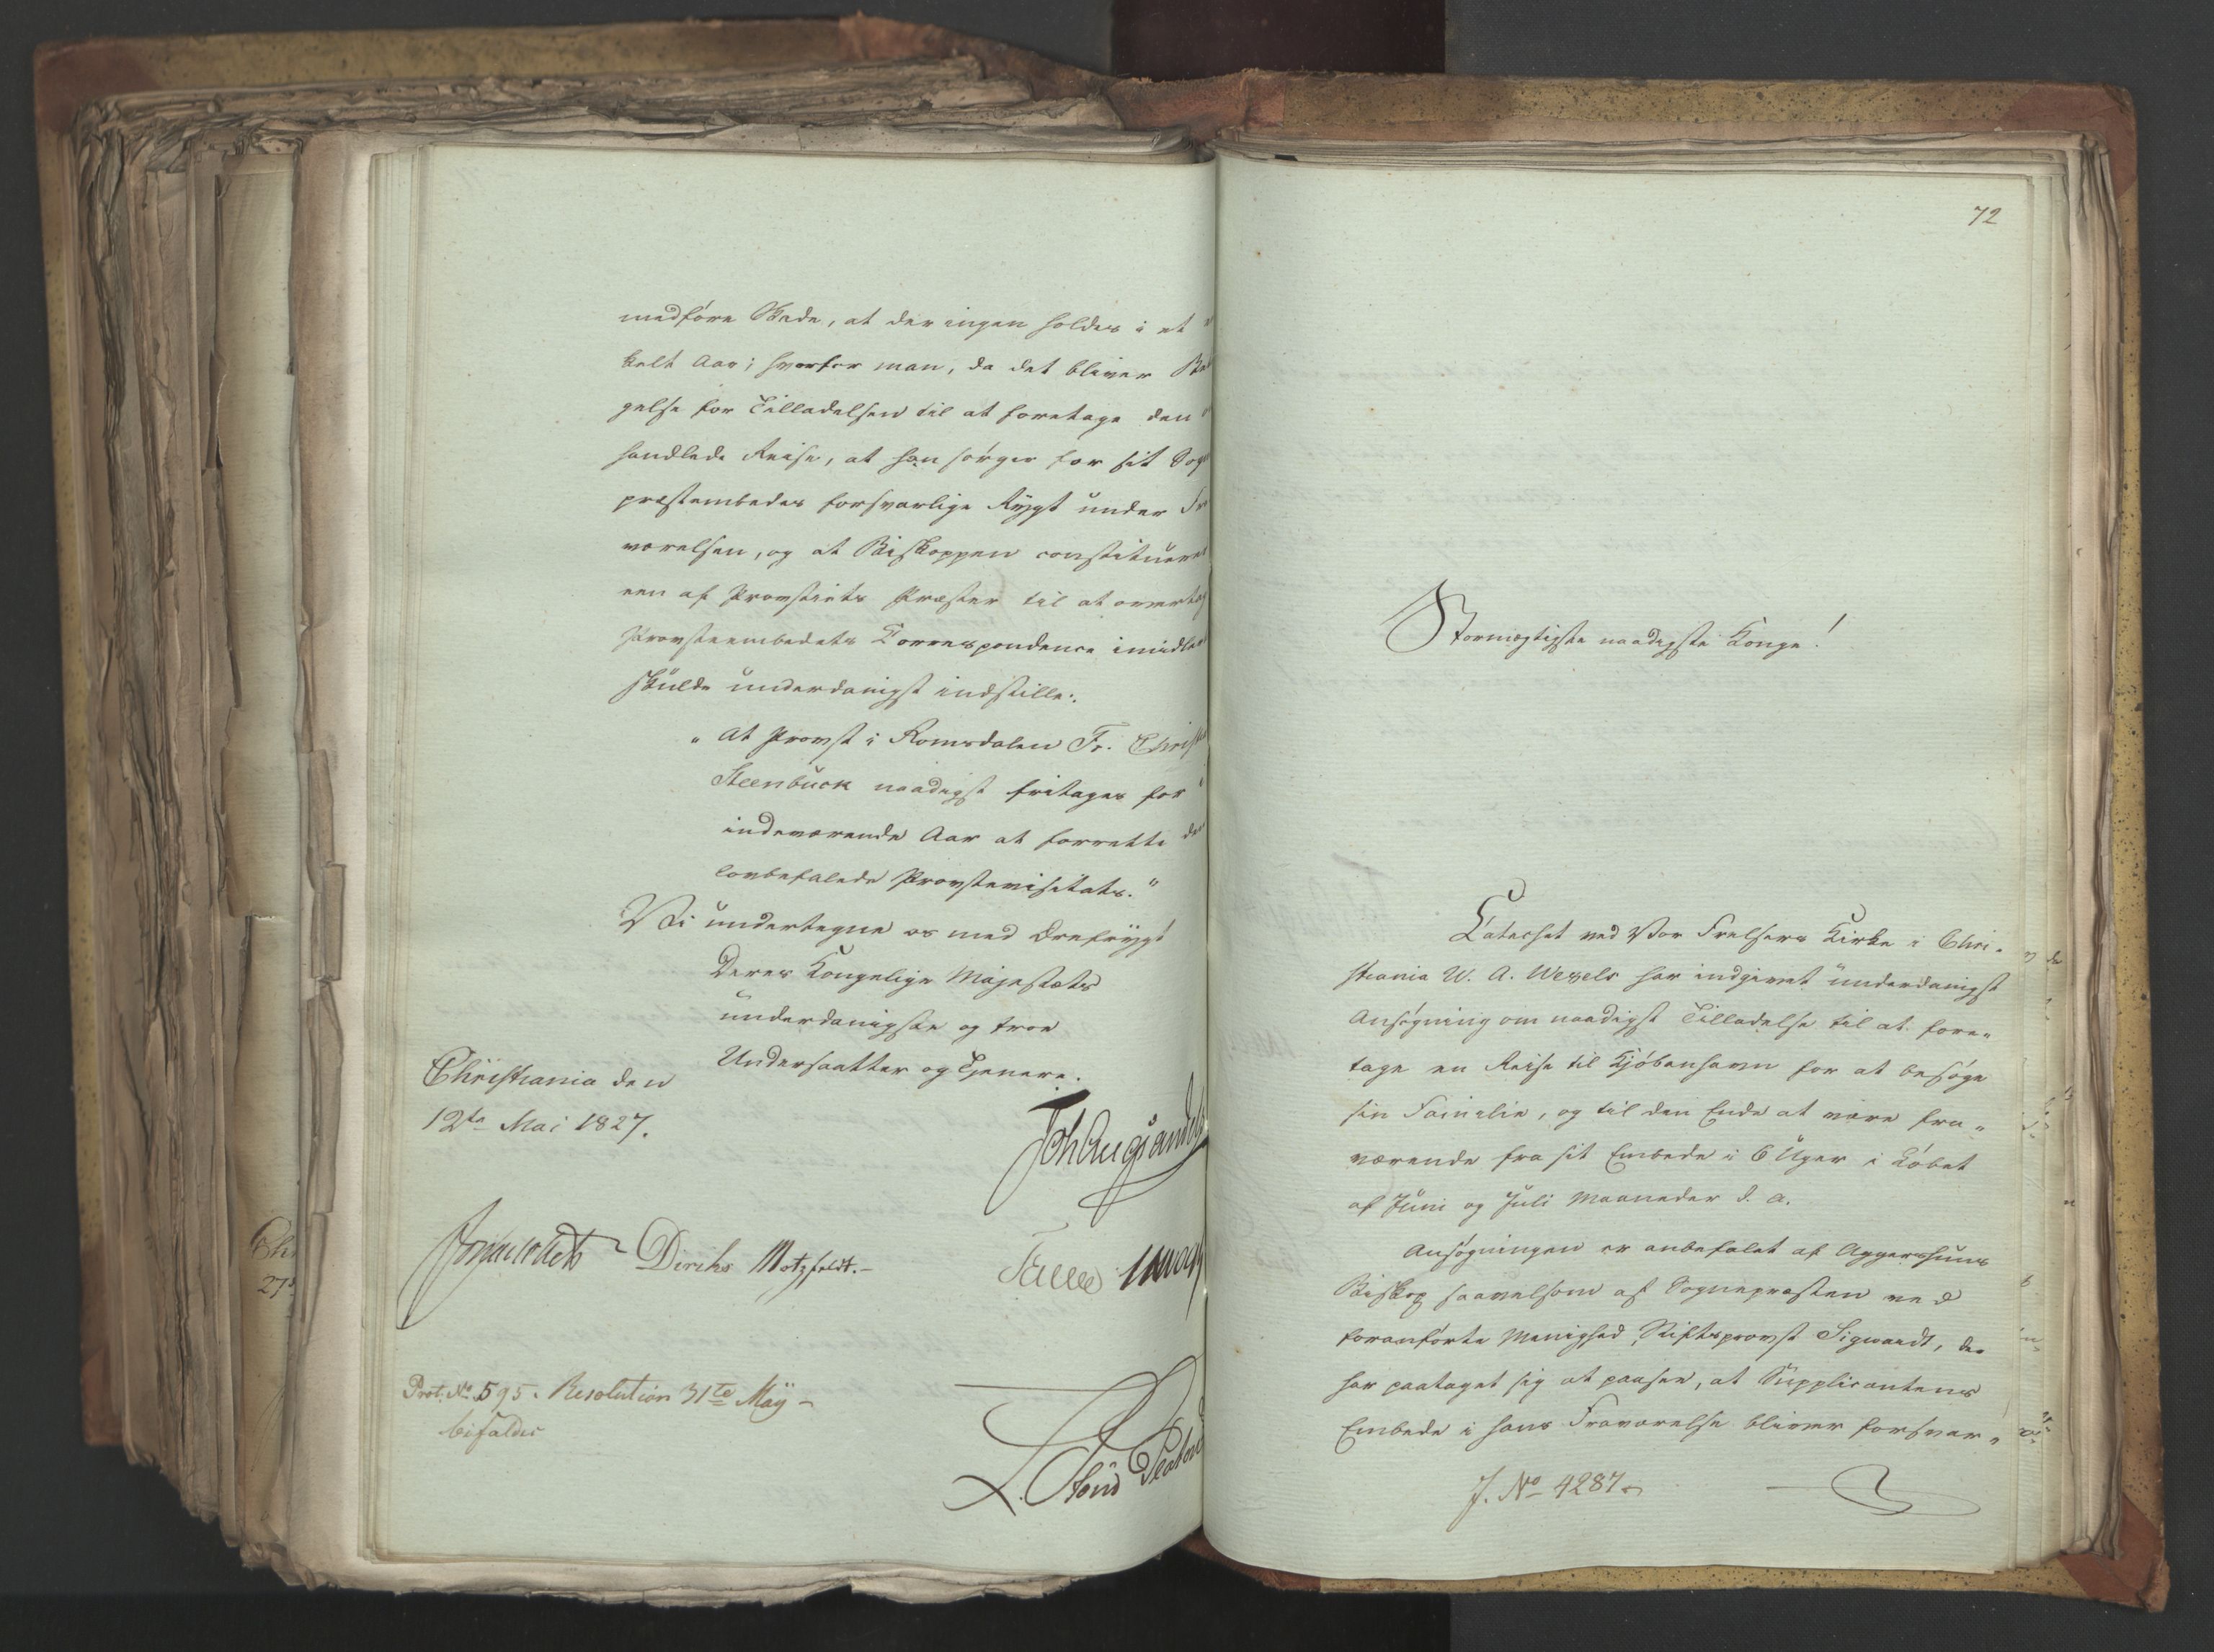 medføre Skade, at der ingen holdes i et
kelt Aar; hvorfor man, da det bliver
gelse for Tilladelsen til at foretage den
handlede Reise, at han sørger for sit Sogne
præstembedes forsvarlige Rygt under Fra
værelsen, og at Biskoppen constituerer
een af Provstiets Præster til at overtag
Provsteembedets Correspondence imidler
skulde underdanigst indstille:
„At Provst i Romsdalen Fr. Christ
Steenbuck naadigst fritages for i
indeværende Aar at forrette de
lovbefalede Provstevisitats."
Vi undertegne os med Ærefrygt
Deres Kongelige Majestæts
underdanigste og troe
Undersaatter og Tjenere.
Christiania den
12te Mai 1827.
Diriks Motzfeldt.
Prot. No 595. Resolution 31te Maÿ
bifaldes
72
Stormægtigste naadigste Konge!
Catechet ved Vor Frelsers Kirke i Chri-
stiania W. A. Wexels har indgivet underdanigst
Ansøgning om naadigst Tilladelse til at fore-
tage en Reise til Kjøbenhavn for at besøge
sin Familie, og til den Ende at være fra-
værende fra sit Embede i 6 Uger i Løbet
af Juni og Juli Maaneder d. A.
Ansøgningen er anbefalet af Aggershuus
Biskop saavelsom af Sognepræsten ved
foranførte Menighed, Stiftsprovst Sigwardt, der
har paataget sig at paasee, at Supplicantens
Embede i hans Fraværelse bliver forsvar-
J. No 4287